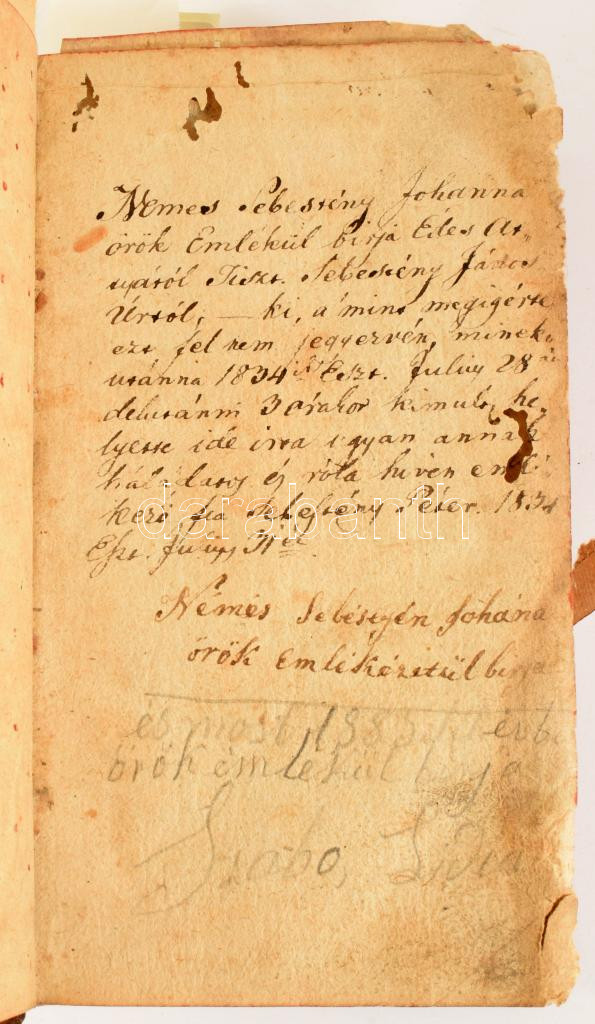 Nemes Sebestény Johanna
örök Emlékül birja Édes At„
tyától Tiszt. Sebestény János
Úrtól, — ki, a'mint megigérte
ezt fel nem jegyezvén, minek„
utánna 1834 Eszt. Julius 28
délutánni 3 órakor kimult, he„
lyette ide irta ugyan annak
háládatos és róla hiven emlé
kező fia Sebestény Péter. 1834
Eszt. Julius
Némes Sebéstyén Johána
örök Emlékézetül birja
és most 1883 évbe
örök emlékül birja
Szabo, Lidia
darabanth